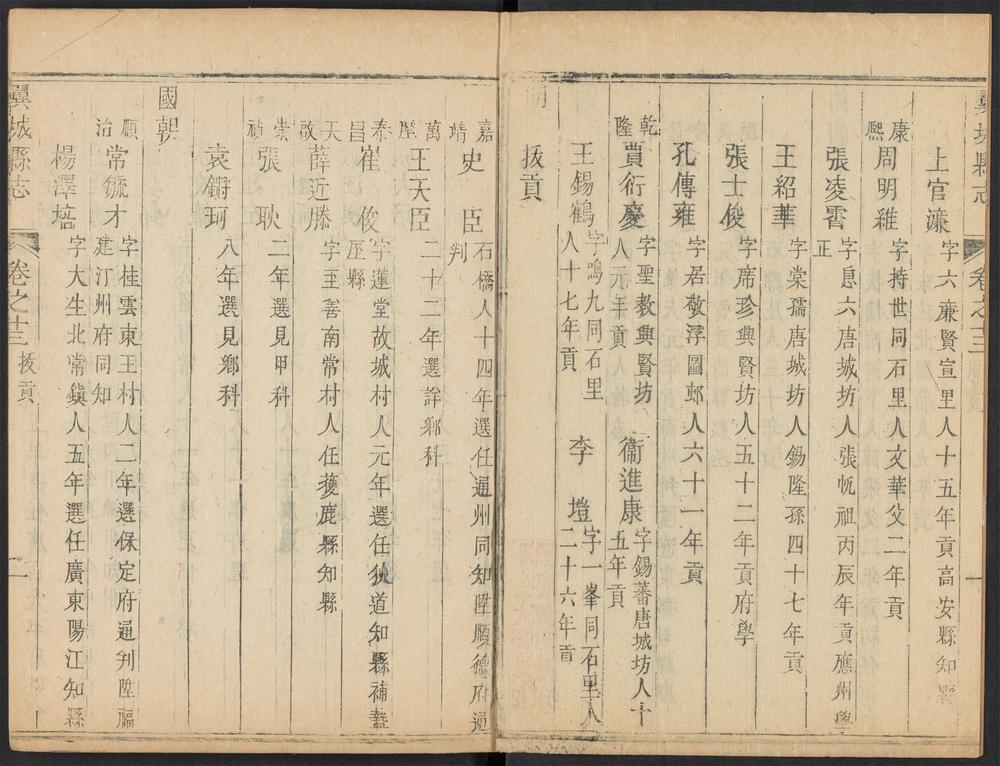 翼城縣志 卷之十三
上官濂 字六亷賢宣里人十五年貢高安縣知縣
康熙 周明雍 字持世同石里人文華父二年貢
張凌霄 字息六唐城坊人張帆祖丙辰年貢應州學正
王紹華 字棠孺唐城坊人錫隆孫四十七年貢
張士俊 字席珍興賢坊人五十二年貢府學
孔傳雍 字居敬浮圖邨人六十一年貢
乾隆 賈衍慶 字聖教興賢坊人元年貢 衞進康 字錫蕃唐城坊人十五年貢
王錫鶴 字鳴九同石里人十七年貢 李塏 字一峯同石里人二十六年貢
拔貢
明
嘉靖 史臣 石橋人十四年選任通州同知陞順德府通判
萬隆 王天臣 二十二年選詳鄉科
泰昌 崔俊 字蓮堂故城村人元年選任狄道知縣補盩厔縣
天啟 薛近滕 字至善南常村人任獲鹿縣知縣
崇禎 張耿 二年選見甲科
袁鏘珂 八年選見鄉科
國朝
順治 常毓才 字桂雲東王村人二年選保定府通判陞福建汀州府同知
楊澤培 字大生北常鎮人五年選任廣東陽江知縣
翼城縣志 卷之十三 拔貢 二